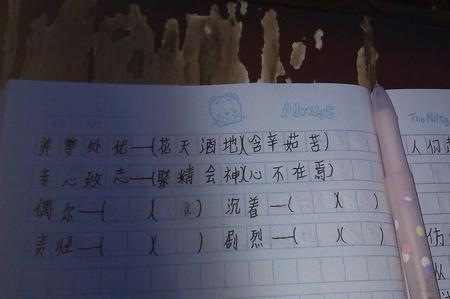 Always
The Nifty
养尊处优—(花天酒地)(含辛茹苦)
专心致志—(聚精会神)(心不在焉)
人们
偶尔—( )( ) 沉着—( )( )
责怪—( )( ) 剧烈—( )( )
伤
从